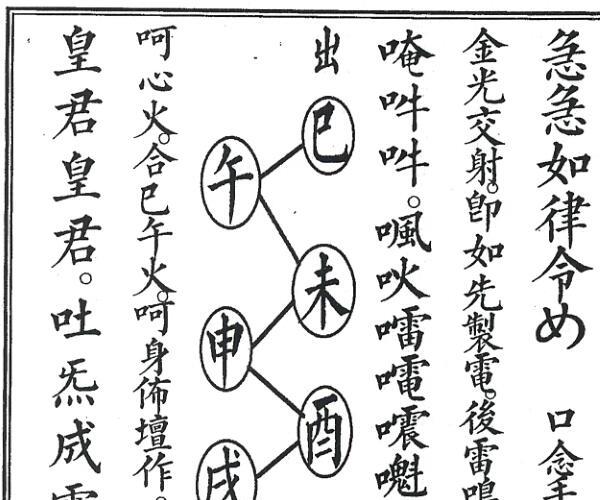 急急如律令 口念手
金光交射。即如先製雷。後雷鳴
唵吽吽。𠺌吙嚠
出巳午未申酉戌
呵心火。合巳午火。呵身佈壇作。
皇君皇君。吐炁成